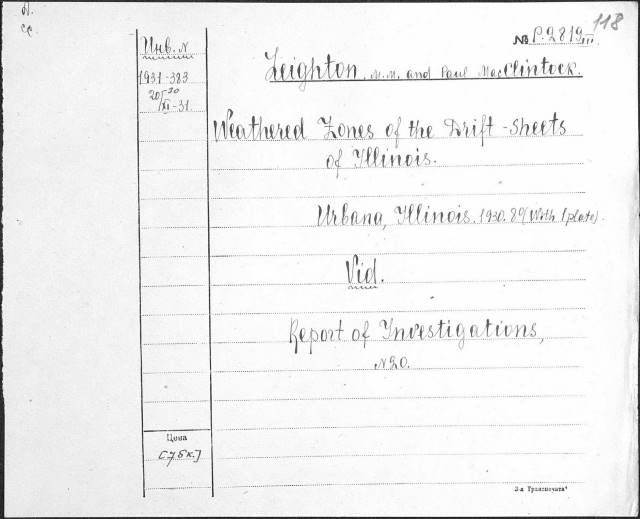 118
№ P.2819III
Инв. N
1931-383
Leighton, M.M. and Paul MacClintock.
Weathered Zones of the Drift-Sheets
of Illinois.
Urbana, Illinois. 1930. 8°(With 1 plate).
Vid.
Report of Investigations,
N20.
Цена
[75к.]
3-я Транспечать